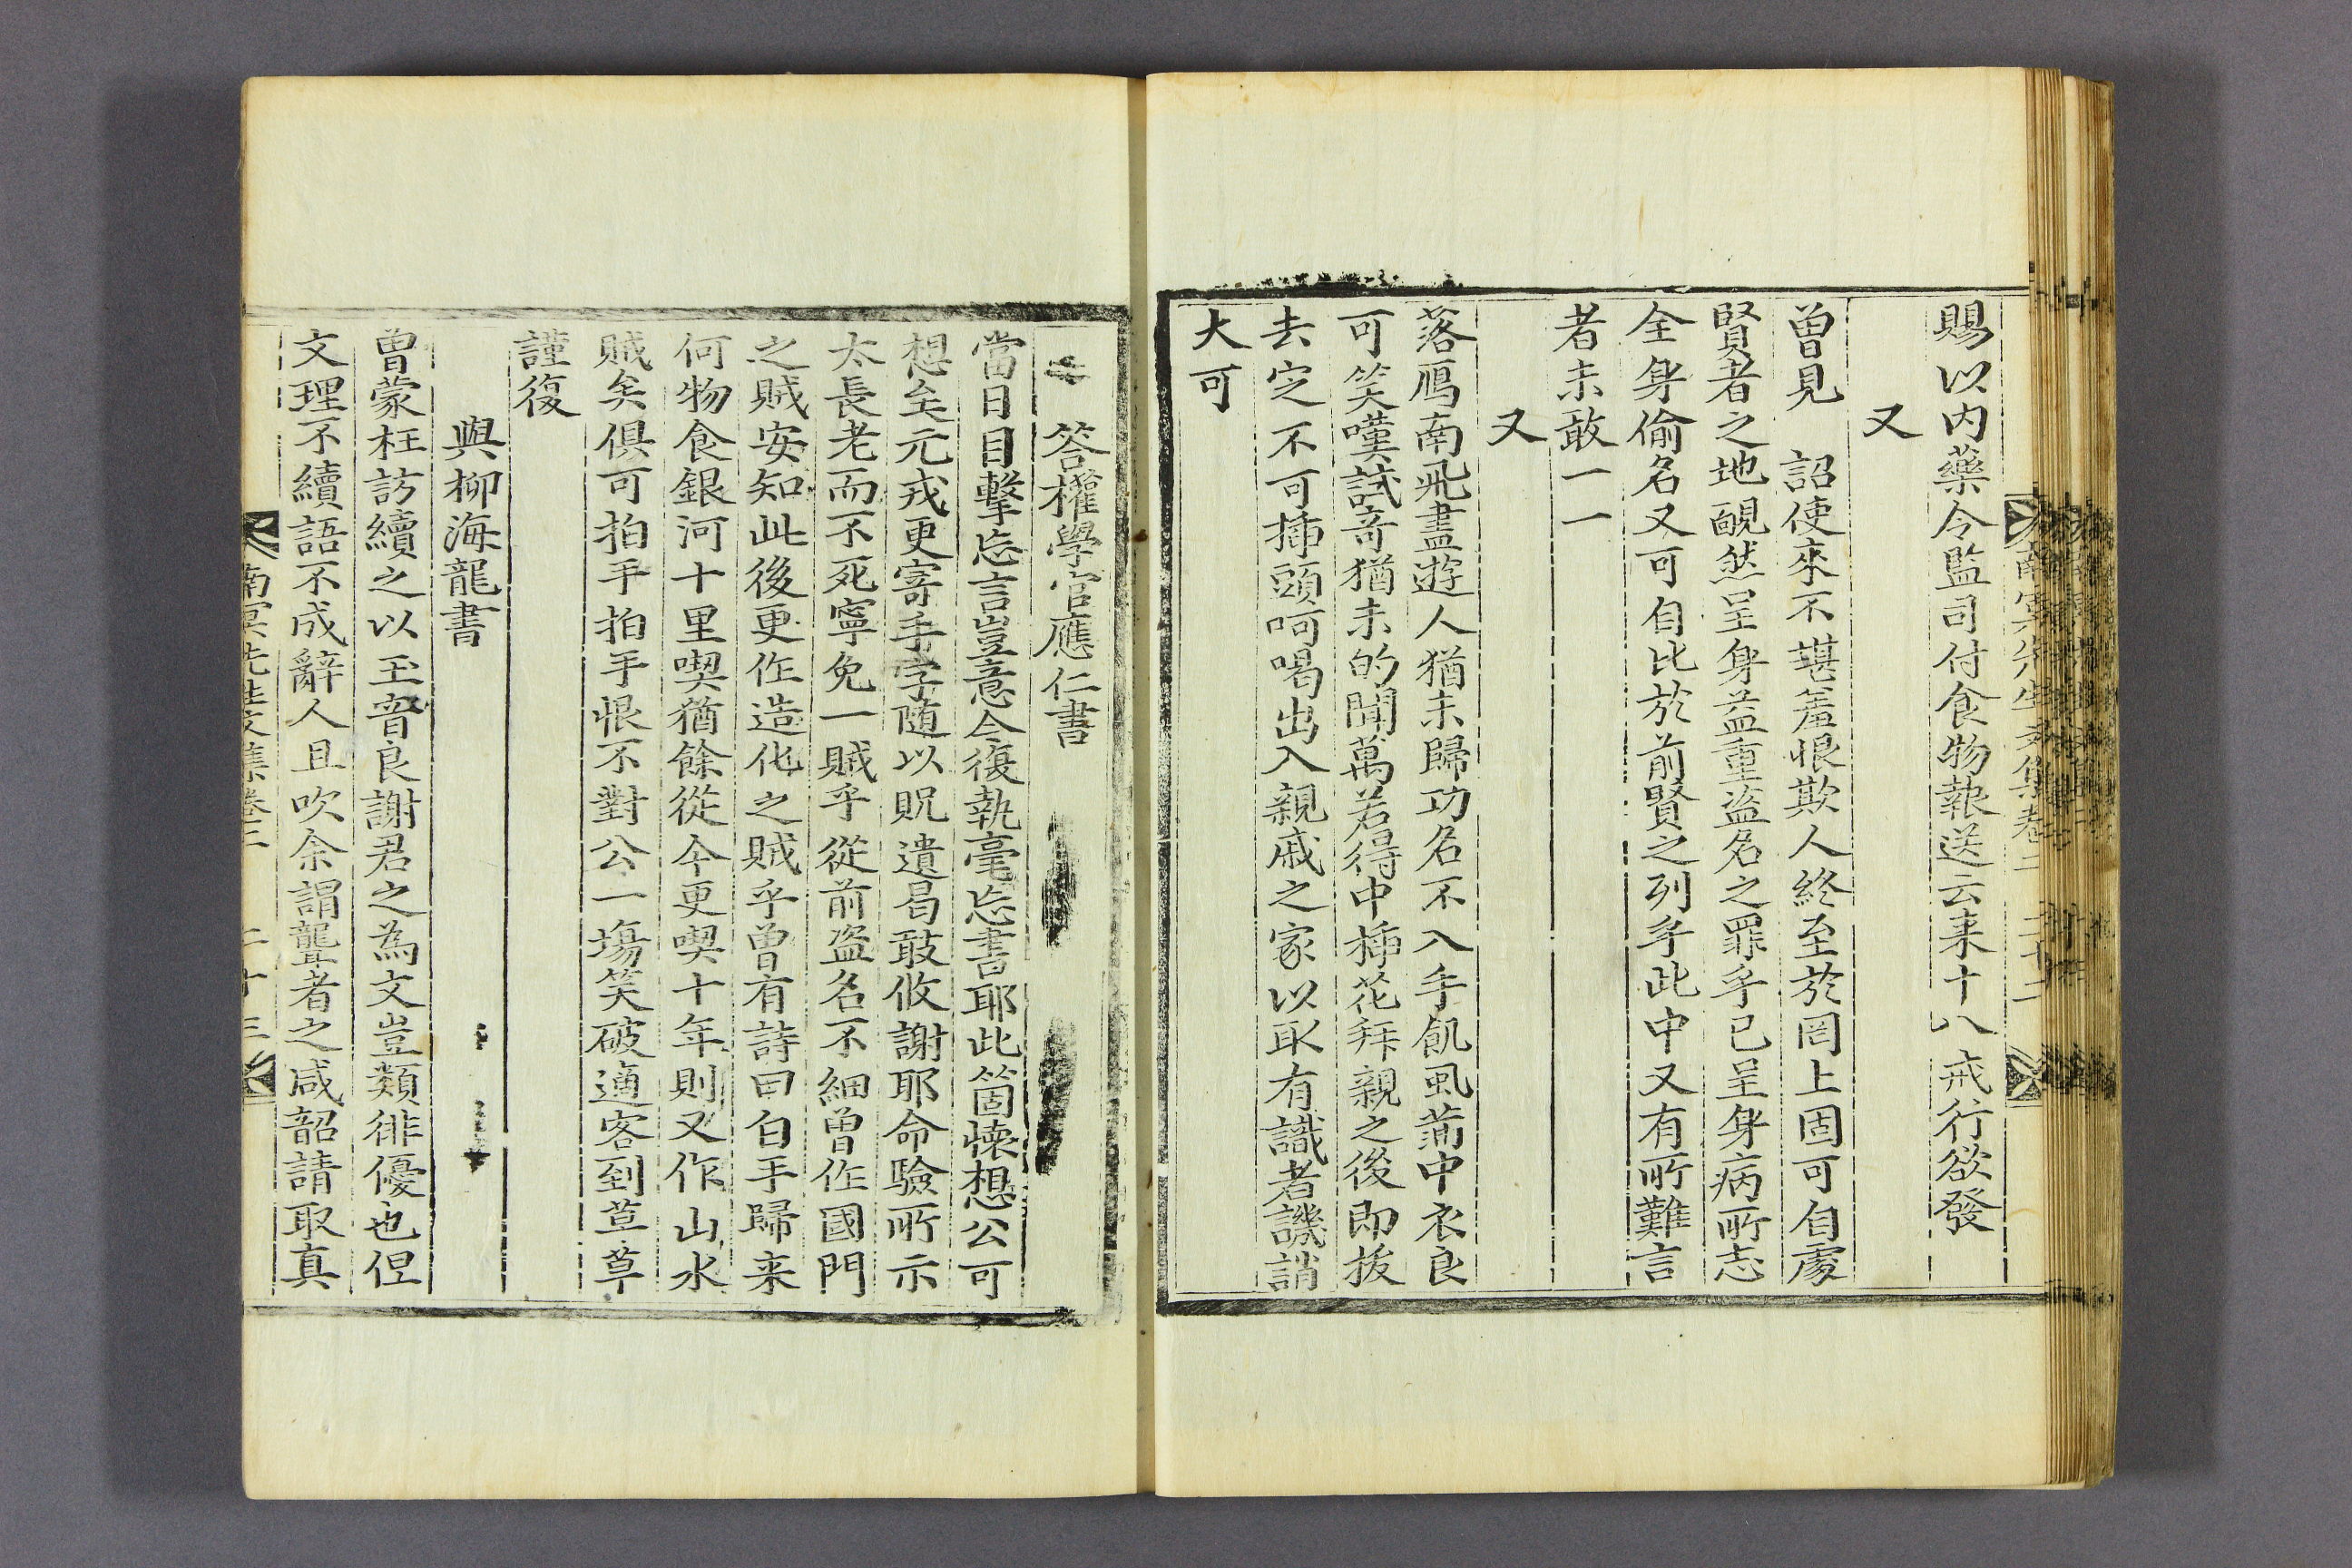 賜以内藥令監司付食物報送云来十八戒行欲發
又
曾見 詔使來不堪羞恨欺人終至於罔上固可自處
賢者之地靦然呈身益重盗名之罪乎已呈身病所志
全身偷名又可自比於前賢之列乎此中又有所難言
者未敢一一
又
落鴈南飛盡遊人猶未歸功名不入手飢虱蒲中衣良
可笑嘆試奇猶未的聞萬若得中揷花拜親之後即拔
去定不可揷頭呵喝出入親戚之家以取有識者譏誚
大可
答權學官應仁書
當日目擊忘言豈意今復執毫忘書耶此箇懷想公可
想矣元戎更寄手字随以貺遺曷敢攸謝耶命驗所示
太長老而不死寧免一賊乎從前盗名不細曾作國門
之賊安知此後更作造化之賊乎曾有詩曰白手歸来
何物食銀河十里喫猶餘從今更喫十年則又作山水
賊矣俱可拍手拍手恨不對公一塲笑破適客到荳草
謹復
與柳海龍書
曾蒙枉訪續之以玉音良謝君之為文豈類俳優也但
文理不續語不成辭人且吹余謂聾者之咸韶請取真
南冥先生文集卷二 二十三